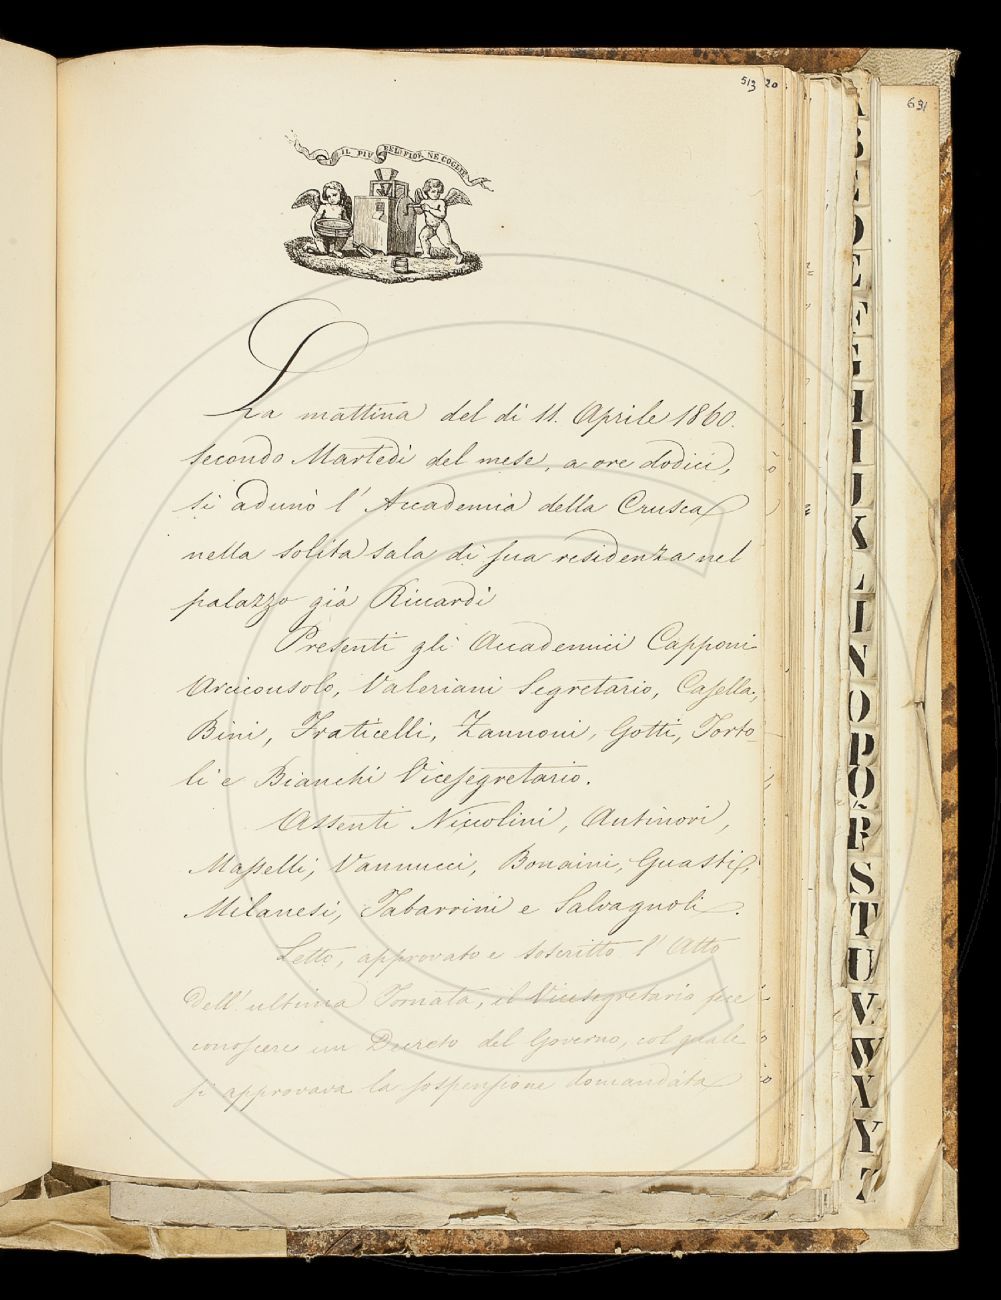 513
20
691
IL PIÙ BEL FIOR NE COGLIE
La mattina del dì 11. Aprile 1860.
secondo Martedì del mese, a ore dodici,
si adunò l'Accademia della Crusca
nella solita sala di sua residenza nel
palazzo già Riccardi
Presenti gli Accademici Capponi
Arciconsolo, Valeriani Segretario, Casella,
Bini, Fraticelli, Zannoni, Gotti, Torto-
li e Bianchi Vicesegretario.
Assenti Niccolini, Antinori,
Masselli, Vannucci, Bonaini, Guasti,
Milanesi, Tabarrini e Salvagnoli.
Letto, approvato e soscritto l'Atto
dell'ultima Tornata, il Vicesegretario fece
conoscere un Decreto del Governo, col quale
si approvava la sospensione domandata
A
B
C
D
E
F
G
H
I
J
K
L
N
O
P
Q
R
S
T
U
V
W
X
Y
Z